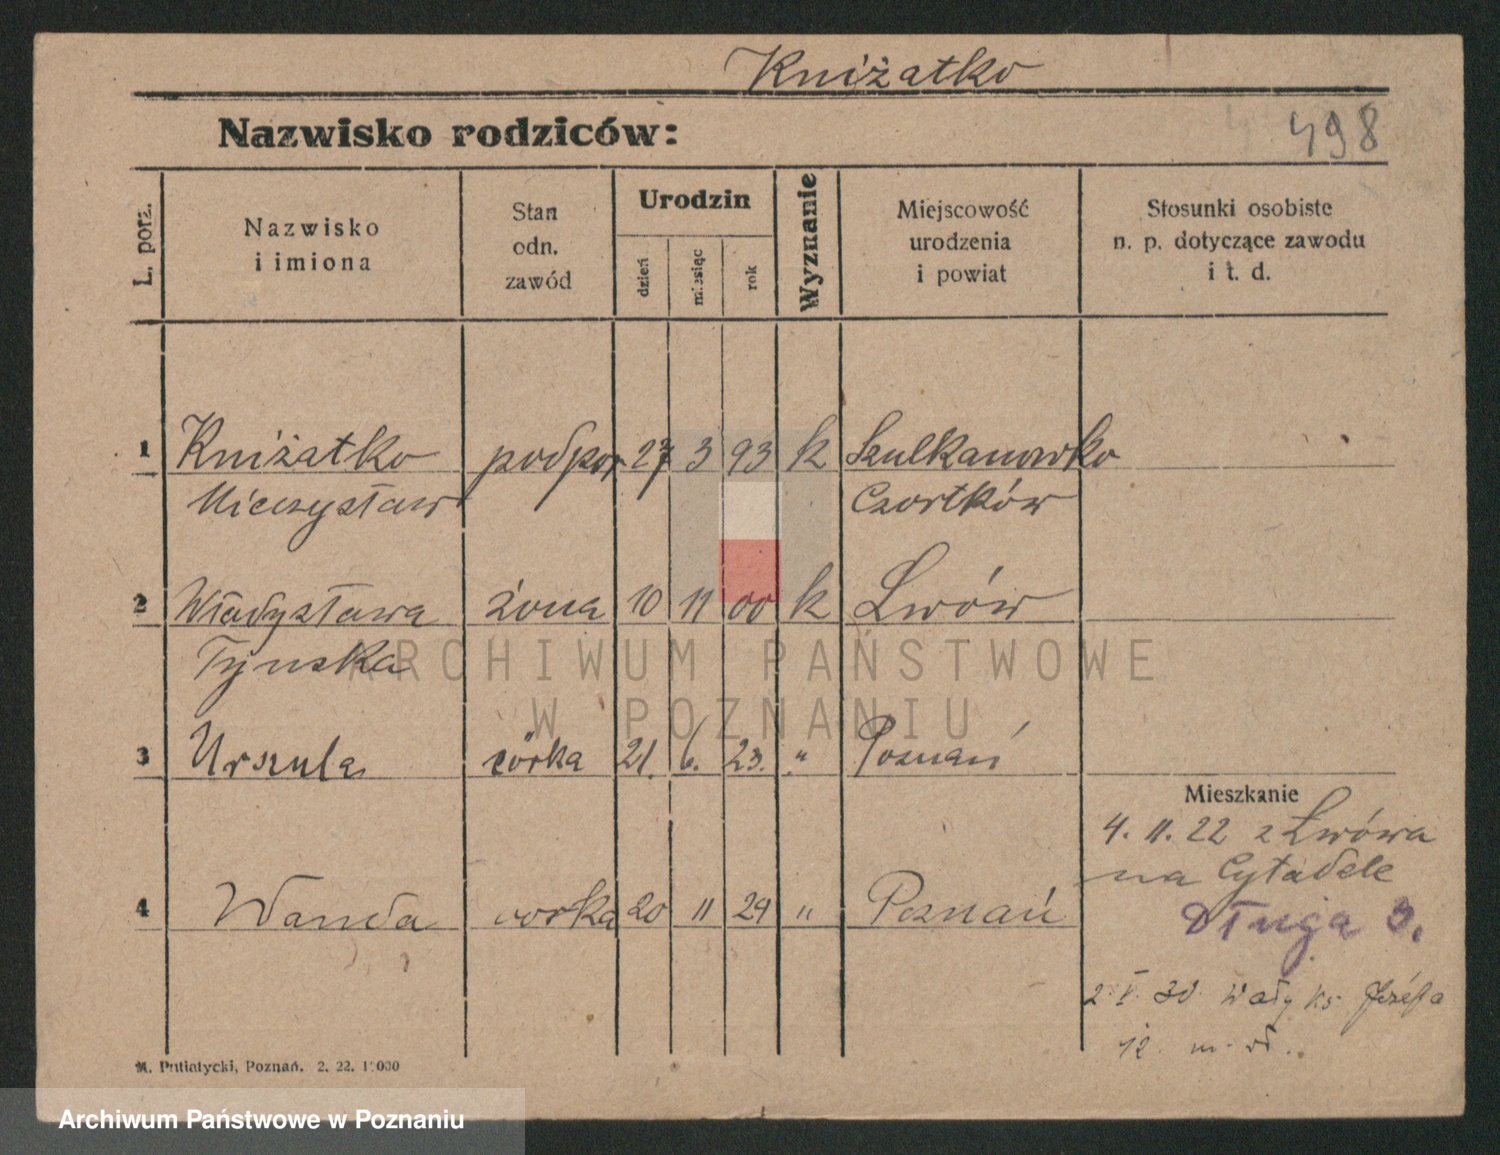 Kniżatko
Nazwisko rodziców:
498
L. porz.
Nazwisko
i imiona
Stan
odn.
zawód
Urodzin
dzień
miesiąc
rok
Wyznanie
Miejscowość
urodzenia
i powiat
Stosunki osobiste
n. p. dotyczące zawodu
i t. d.
1 Kniżatko podpor 27 3 93 k Szulkanowko
Mieczysław Czortków
2 Władysława żona 10 11 00 k Lwów
Tyńska
ARCHIWUM PAŃSTWOWE
W POZNANIU
3 Urszula córka 21. 6. 23. " Poznań
Mieszkanie
4. 11. 22 z Lwówa
na Cytadele
4 Wanda corka 20 11 29 " Poznań
Długa 3.
2. V. 30. Wały Ks. Józefa
12. m.
M. Putiatycki, Poznań. 2. 22. 1000
Archiwum Państwowe w Poznaniu